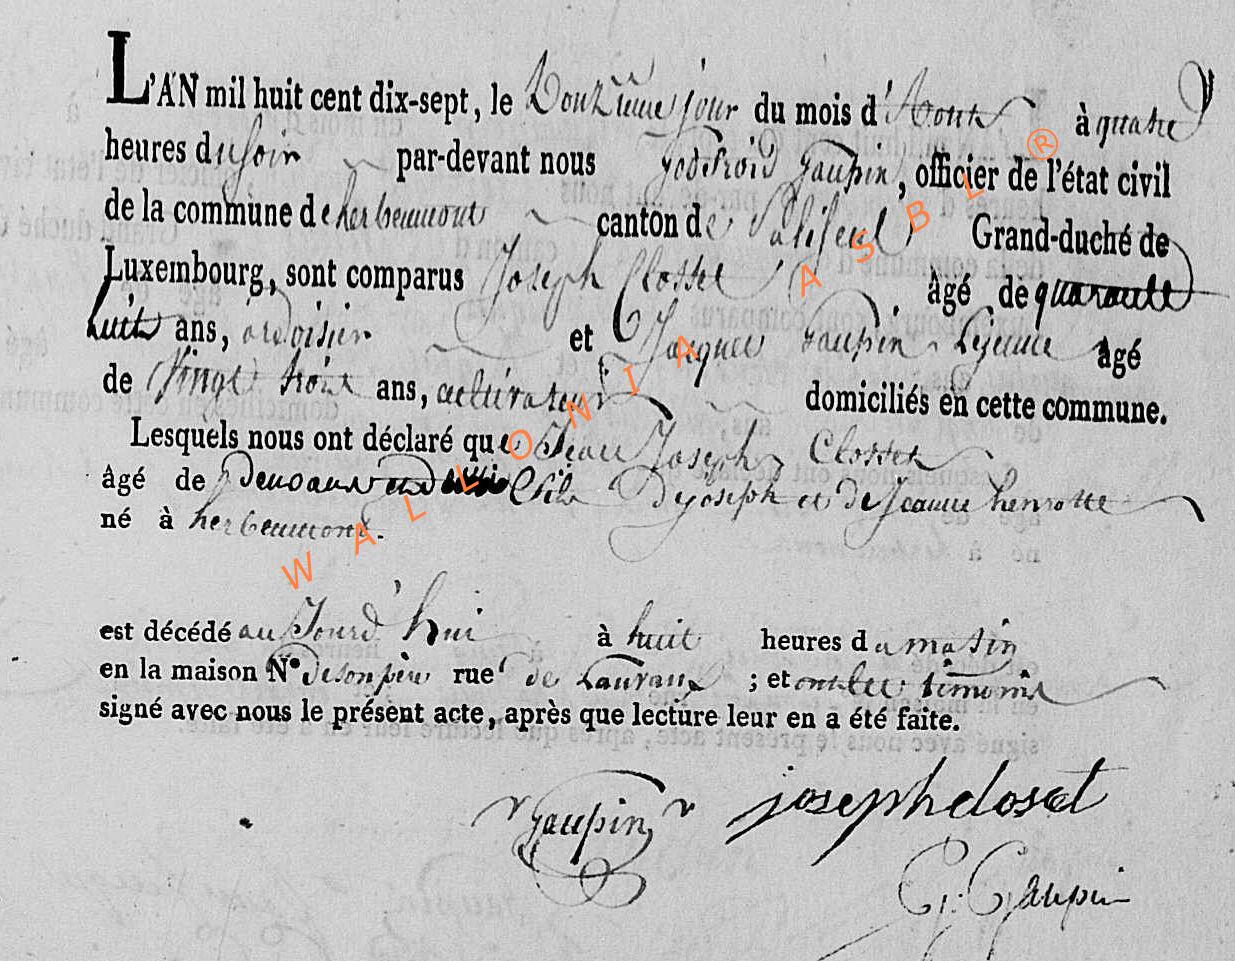 L'AN mil huit cent dix-sept, le Douzieme jour du mois d'Aout à quatre
heures du soir par-devant nous godefroid Gaupin, officier de l'état civil
de la commune de herbeumont canton de Paliseul Grand-duché de
Luxembourg, sont comparus Joseph Closset âgé de quarante
huit ans, ardoisier et Jacques Gaupin Lejeune âgé
de Vingt huit ans, cultivateur domiciliés en cette commune.
Lesquels nous ont déclaré que Jean Joseph Closset
âgé de Deux ans fils De joseph et de Jeanne henrotte
né à herbeumont.
est décédé aujourd'hui à huit heures du matin
en la maison N.° de son père rue de Lauvaux ; et ont les temoins
signé avec nous le présent acte, après que lecture leur en a été faite.
Gaupin joseph closet
G. Gaupin
WALLONIA ASBL ®